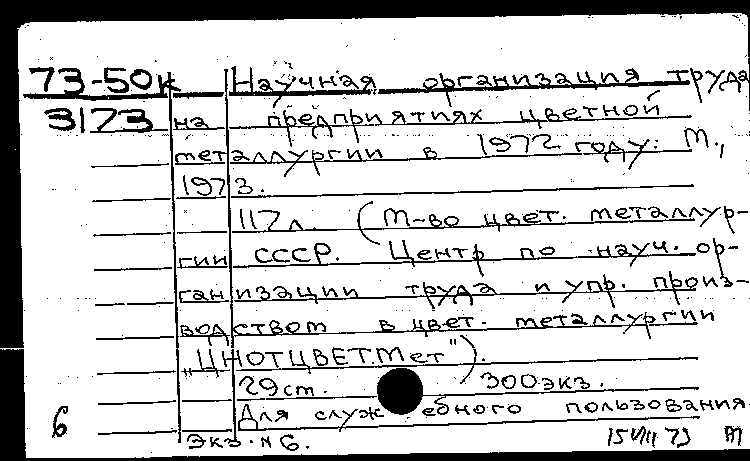 73-50к Научная организация труда
3173 на предприятиях цветной
металлургии в 1972 году. М.,
1973.
117л. (М-во цвет. металлур-
гии СССР. Центр по науч. ор-
ганизации труда и упр. произ-
водством в цвет. металлургии
„ЦНОТЦВЕТМет").
29см. 300экз.
Для служебного пользования.
6 Экз. №6. 15 VIII 73